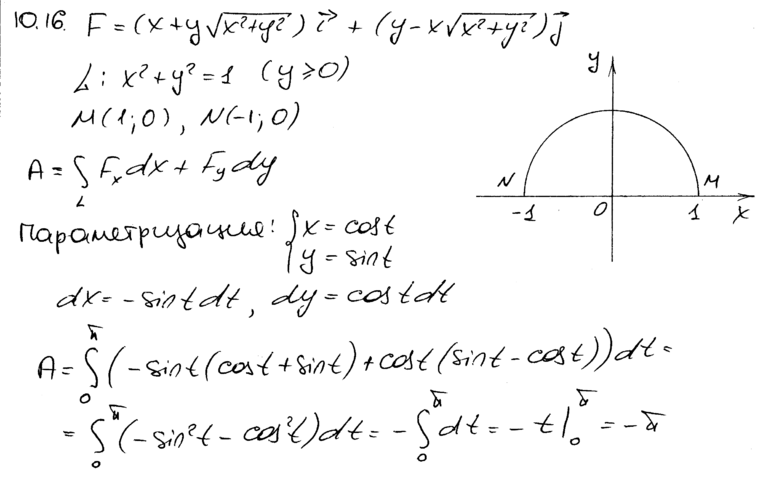 10.16. F = (x+y√(x²+y²)) i⃗ + (y-x√(x²+y²)) j⃗
L: x²+y²=1 (y⩾0)
M(1;0), N(-1;0)
A = ∫_L F_x dx + F_y dy
Параметризация: { x = cost
y = sint
dx = -sintdt, dy = costdt
A = ∫_0^π (-sint(cost+sint)+cost(sint-cost))dt =
= ∫_0^π (-sin²t - cos²t)dt = -∫_0^π dt = -t|_0^π = -π
y
N M
-1 0 1 x